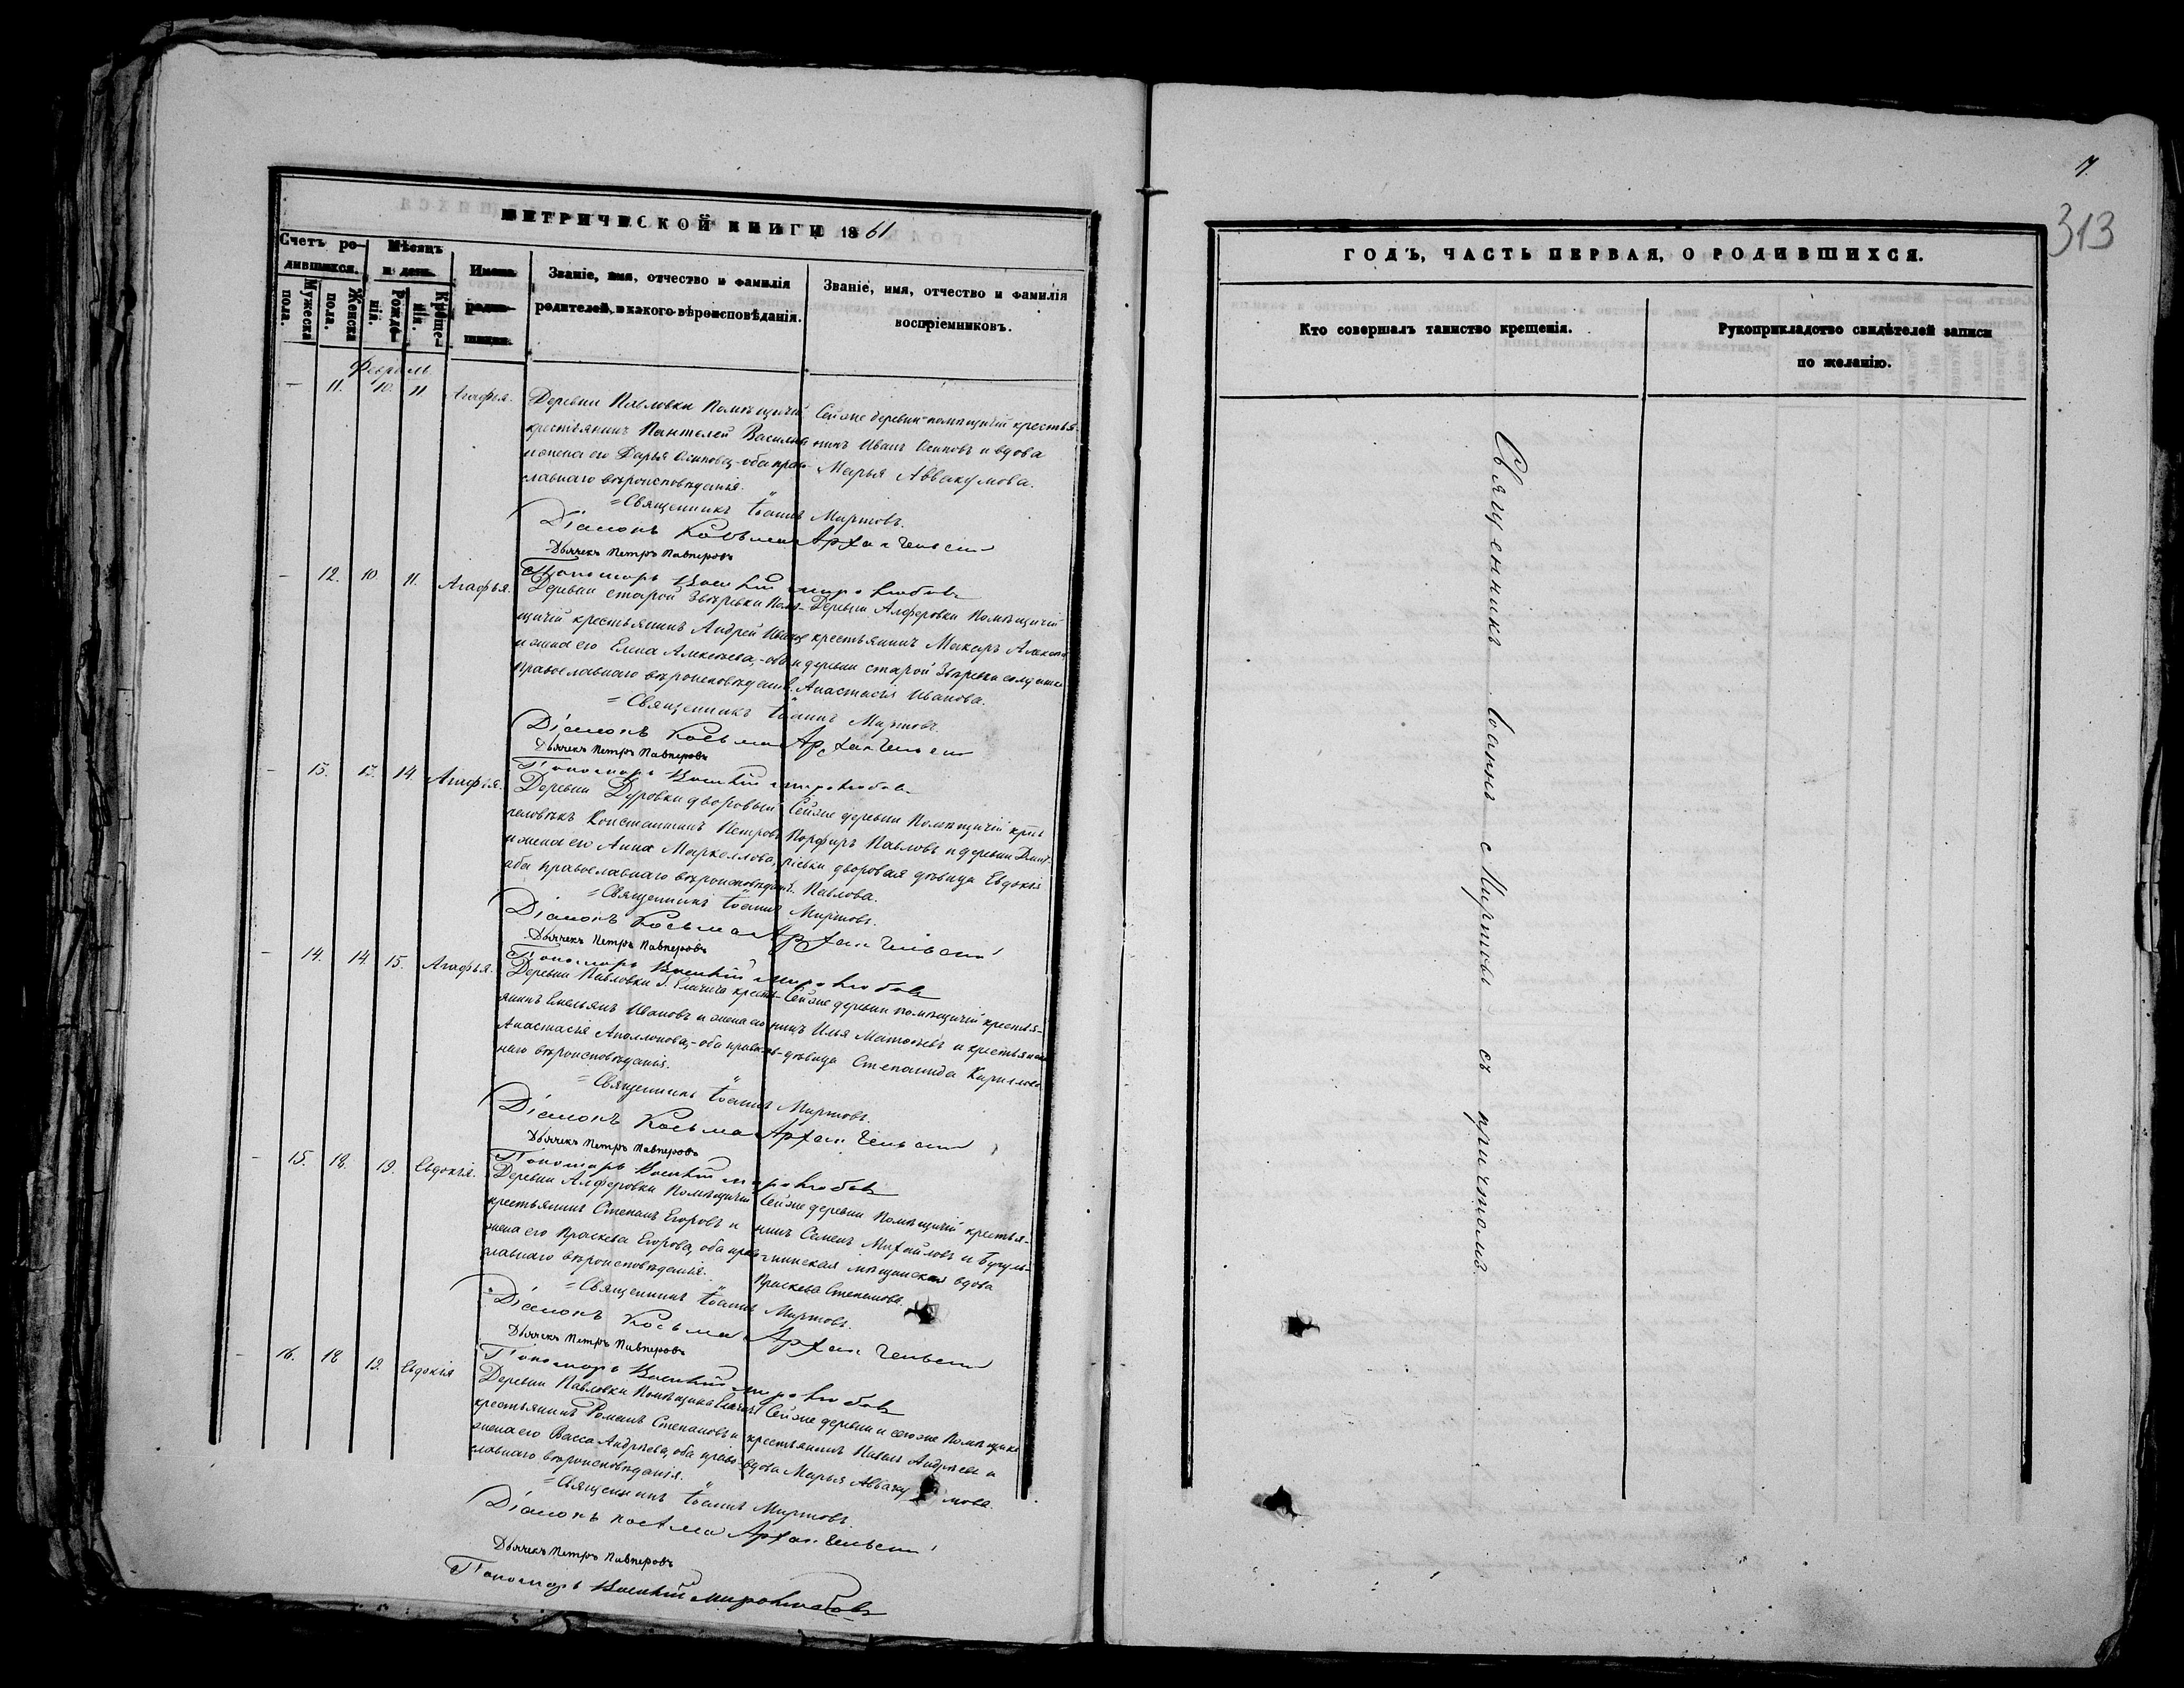 МЕТРИЧЕСКОЙ КНИГИ 1861
Счетъ родившихся.
Мужеска пола.
Женска пола.
Мѣсяцъ и день.
Рожденія.
Крещенія.
Имена родившихся.
Званіе, имя, отчество и фамилія
родителей, и какого вѣроисповѣданія.
Званіе, имя, отчество и фамилія
воспріемниковъ.
Февраль
11. 10. 11 Агафья.
Деревни Павловки Помѣщичій
крестьянинъ Пантелей Васильевъ
и жена его Дарья Осипова, оба право-
славнаго вѣроисповѣданія.
Сей же деревни помѣщичій крестья-
нинъ Иванъ Осиповъ и вдова
Марья Аввакумова.
Священникъ Іоаннъ Миртовъ.
Діаконъ Косьма Архангельскій
Дьячекъ Петръ Павперовъ
Пономарь Василій Миролюбовъ
12. 10 11. Агафья.
Деревни старой Звѣревки Помѣ-
щичій крестьянинъ Андрей Ивановъ
и жена его Елена Алексѣева, оба
православнаго вѣроисповѣданія.
Деревни Алферовки Помѣщичій
крестьянинъ Макаръ Алексѣевъ
и деревни старой Звѣревки солдатка
Анастасія Иванова.
Священникъ Іоаннъ Миртовъ.
Діаконъ Косьма Архангельскій
Дьячекъ Петръ Павперовъ
Пономарь Василій Миролюбовъ
13. 13. 14 Агафья.
Деревни Дуровки дворовый
человѣкъ Константинъ Петровъ
и жена его Анна Маркеллова,
оба православнаго вѣроисповѣданія.
Сей же деревни Помѣщичій
Порфиръ Павловъ и деревни Дмит-
ріевки дворовая дѣвица Евдокія
Павлова.
Священникъ Іоаннъ Миртовъ.
Діаконъ Косьма Архангельскій
Дьячекъ Петръ Павперовъ
Пономарь Василій Миролюбовъ
14. 14. 15. Агафья.
Деревни Павловки г. Елачича кресть-
янинъ Емельянъ Ивановъ и жена его
Анастасія Аполлонова, оба православ-
наго вѣроисповѣданія.
Сей же деревни помѣщичій крестья-
нинъ Илья Матвѣевъ и крестьянская
дѣвица Степанида Кирилова
Священникъ Іоаннъ Миртовъ.
Діаконъ Косьма Архангельскій
Дьячекъ Петръ Павперовъ
Пономарь Василій Миролюбовъ
15. 18. 19. Евдокія.
Деревни Алферовки Помѣщичій
крестьянинъ Степанъ Егоровъ и
жена его Праскева Егорова, оба право-
славнаго вѣроисповѣданія.
Сей же деревни Помѣщичій крестья-
нинъ Семенъ Михайловъ и Бугуль-
минская мѣщанская вдова
Праскева Степанова.
Священникъ Іоаннъ Миртовъ.
Діаконъ Косьма Архангельскій
Дьячекъ Петръ Павперовъ
Пономарь Василій Миролюбовъ
16. 18 19. Евдокія
Деревни Павловки Помѣщика Елачича
крестьянинъ Романъ Степановъ и
жена его Васса Андрѣева, оба право-
славнаго вѣроисповѣданія.
Сей же деревни и сего же Помѣщика
крестьянинъ Павелъ Андрѣевъ и
вдова Марья Аввакумова.
Священникъ Іоаннъ Миртовъ.
Діаконъ Косьма Архангельскій
Дьячекъ Петръ Павперовъ
Пономарь Василій Миролюбовъ
7.
313
ГОДЪ, ЧАСТЬ ПЕРВАЯ, О РОДИВШИХСЯ.
Кто совершалъ таинство крещенія.
Рукоприкладство свидѣтелей записи
по желанію.
Священникъ Іоаннъ Миртовъ съ причтомъ.